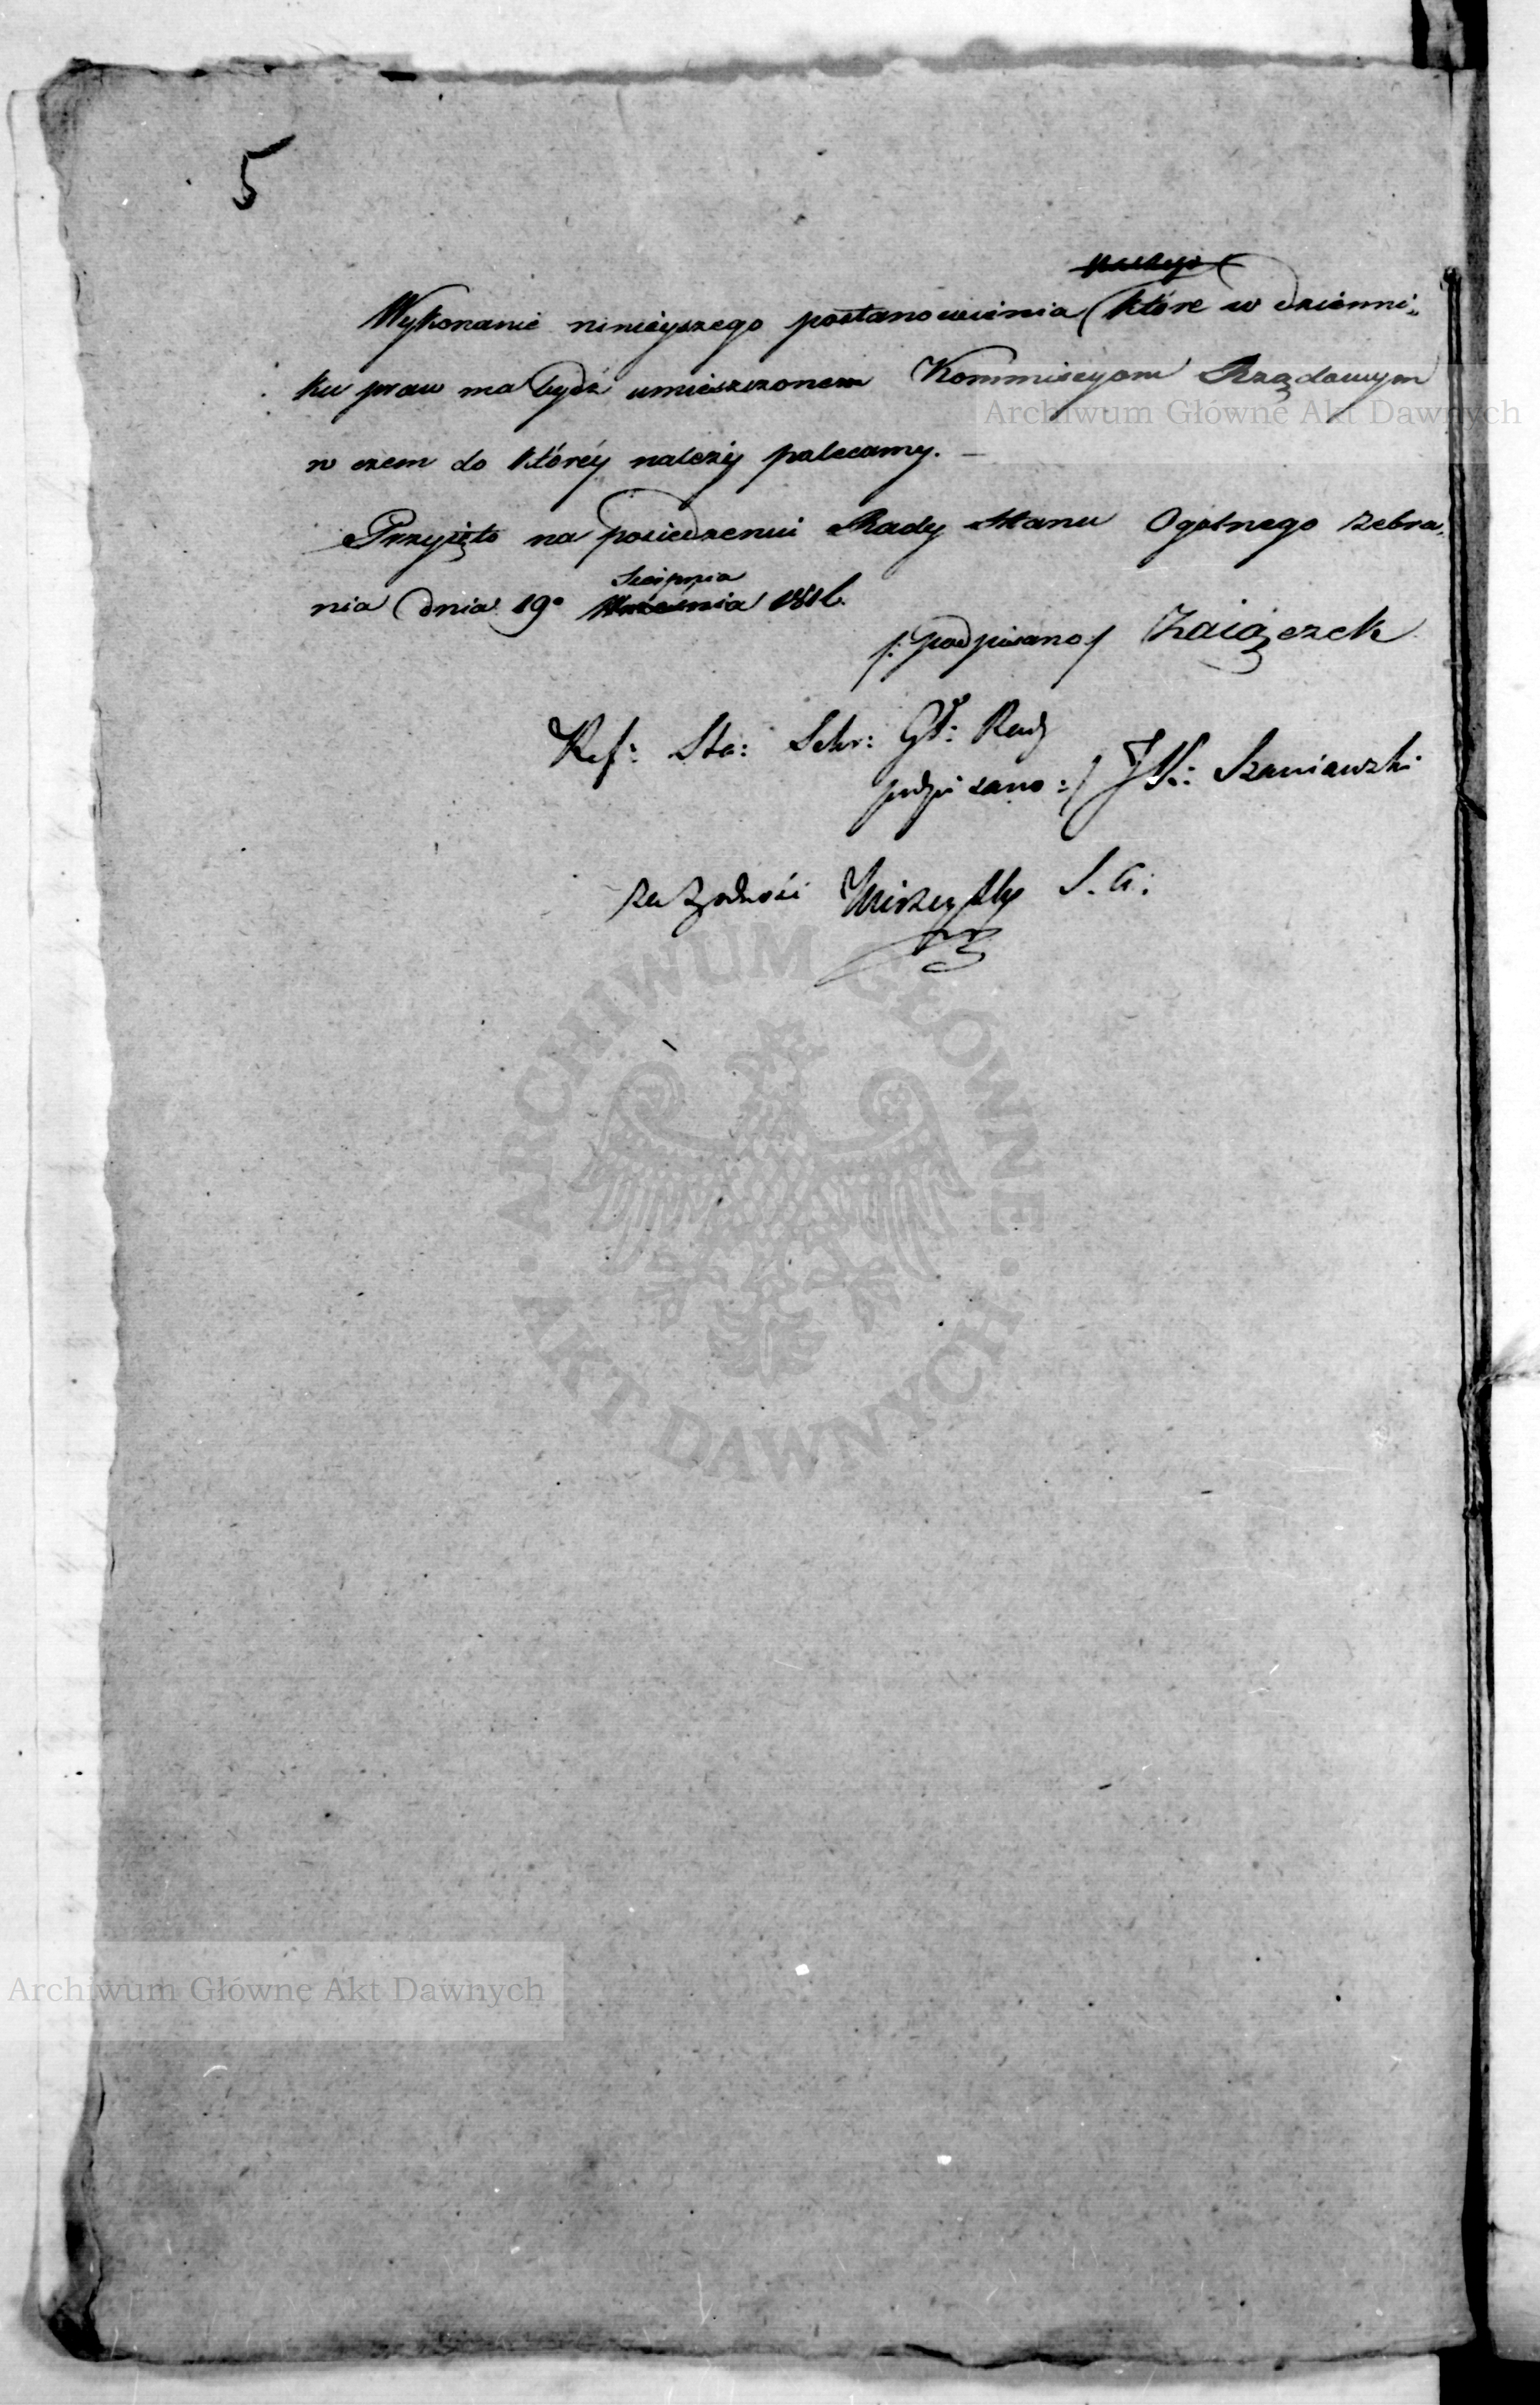 5
Wykonanie ninieyszego postanowienia, które w dzienni„
ku praw ma bydź umieszczonem Kommissyom Rządowym
w czem do któréy należy polecamy. —
Przyięto na posiedzeniu Rady Stanu Ogolnego Zebra„
Sierpnia
nia dnia 19º Września
/: podpisano :/ Zaiączek
Ref: Sta: Sekr: Gł: Rady
podpisano :/ J K: Szaniawski
Za Zgodność S. A:
Archiwum Główne Akt Dawnych
ARCHIWUM GŁÓWNE
· AKT DAWNYCH ·
Archiwum Główne Akt Dawnych